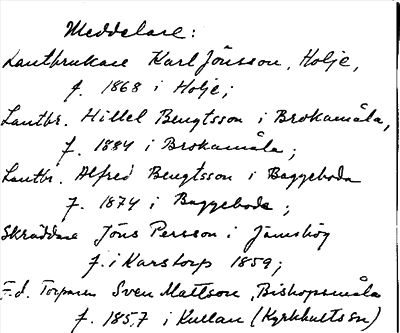 Meddelare:
Lantbrukare Karl Jönsson, Holje,
f. 1868 i Holje;
Lantbr. Hillel Bengtsson i Brokamåla,
f. 1884 i Brokamåla;
Lantbr. Alfred Bengtsson i Baggeboda
f. 1874 i Baggeboda;
Skräddare Jöns Persson i Jämshög
f. i Karstorp 1859;
F.d. Torparen Sven Mattsson, Biskopsmåla
f. 1857 i Kullan (Kyrkhults sn)